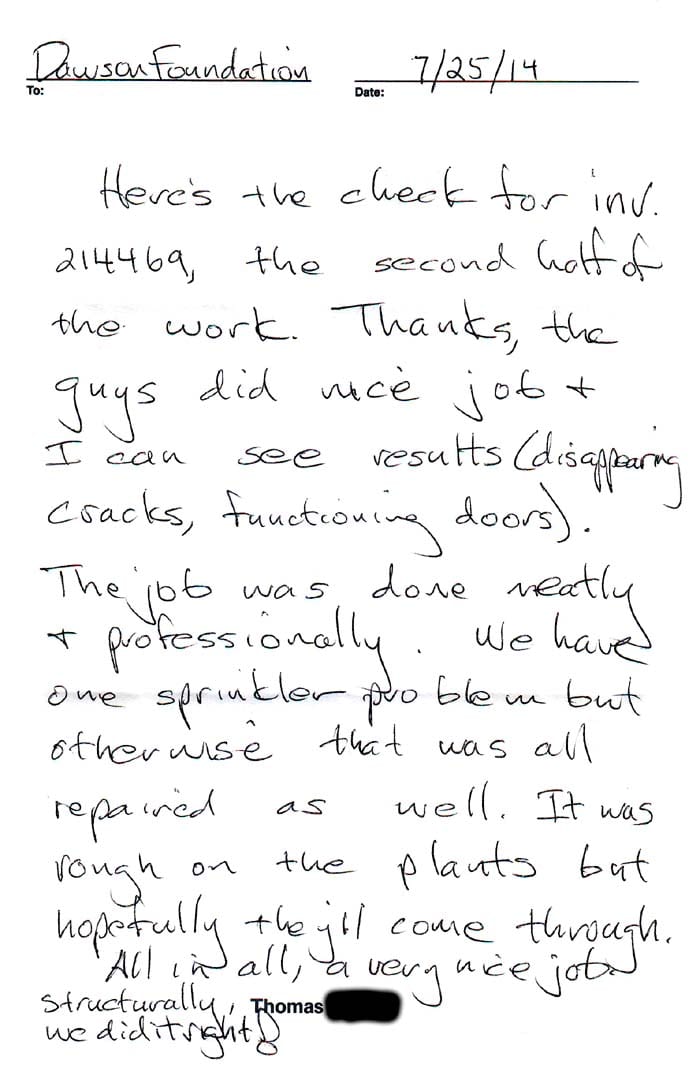 Dawson Foundation 7/25/14
To: Date:
Here's the check for inv.
214469, the second half of
the work. Thanks, the
guys did nice job +
I can see results (disappearing
cracks, functioning doors).
The job was done neatly
+ professionally. We have
one sprinkler problem but
otherwise that was all
repaired as well. It was
rough on the plants but
hopefully they'll come through.
All in all, a very nice job
structurally, Thomas
we did it right!